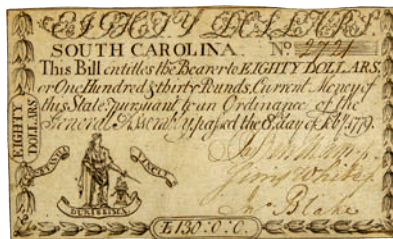 EIGHTY DOLLARS
SOUTH CAROLINA. No 2721
This Bill entitles the Bearer to EIGHTY DOLLARS,
or One Hundred & thirty Pounds, Current Money of
this State, pursuant to an Ordinance of the
General Assembly, passed the 8, day of Feb,y 1779.
EIGHTY
DOLLARS
Blake
DURISSIMA
£130:0:0.